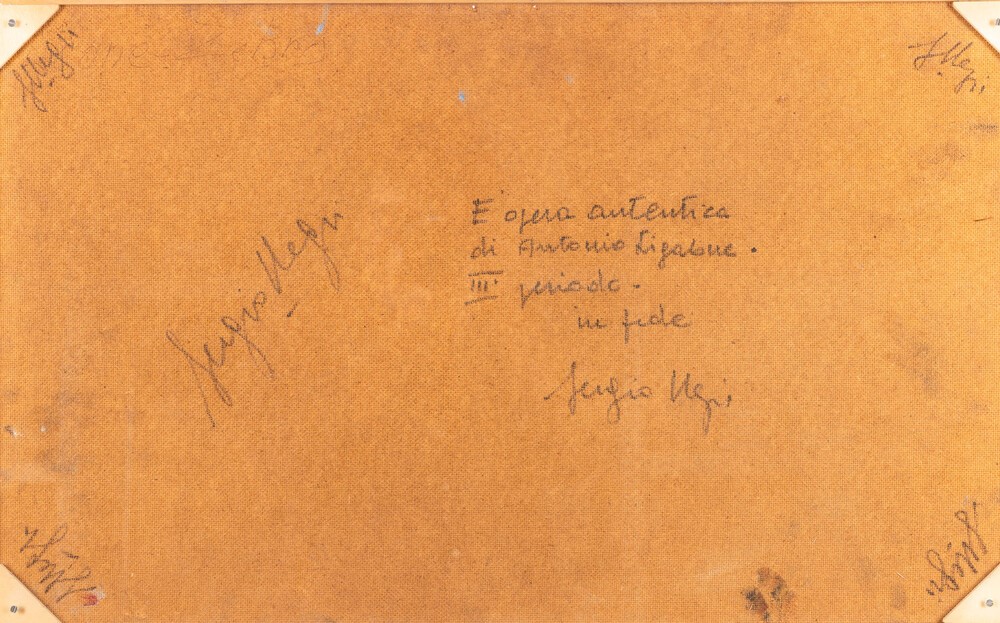 S Negri
S. Negri
Sergio Negri
E' opera autentica
di Antonio Ligabue.
III. periodo.
in fede
Sergio Negri
S. Negri
S. Negri